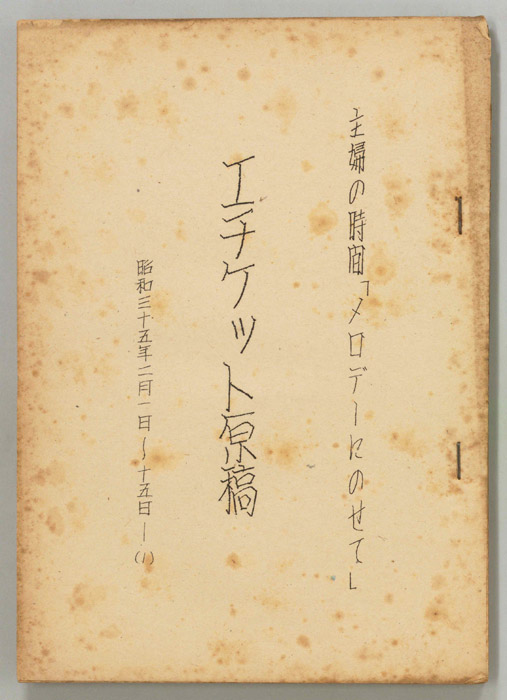 主婦の時間「メロデーにのせて」
エチケット原稿
昭和三十五年二月一日〜十五日―(1)